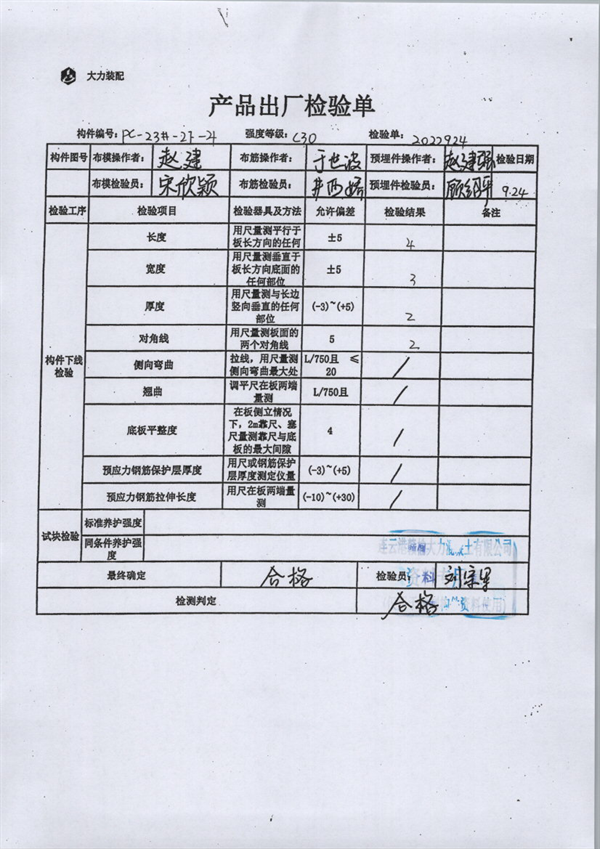 大力装配
产品出厂检验单
构件编号: PC-23#-2F-21 强度等级: C30 检验单: 2022924
构件图号 布模操作者: 赵建 布筋操作者: 于世波 预埋件操作者: 赵建强 检验日期
布模检验员: 宋欣颖 布筋检验员: 预埋件检验员: 9.24
检验工序 检验项目 检验器具及方法 允许偏差 检验结果 备注
构件下线检验
长度 用尺量测平行于板长方向的任何 ±5 4
宽度 用尺量测垂直于板长方向底面的任何部位 ±5 3
厚度 用尺量测与长边竖向垂直的任何部位 (-3)~(+5) 2
对角线 用尺量测板面的两个对角线 5 2
侧向弯曲 拉线，用尺量测侧向弯曲最大处 L/750且 ≤20 /
翘曲 调平尺在板两端量测 L/750且 /
底板平整度 在板侧立情况下，2m靠尺、塞尺量测靠尺与底板的最大间隙 4 /
预应力钢筋保护层厚度 用尺或钢筋保护层厚度测定仪量 (-3)~(+5) /
预应力钢筋拉伸长度 用尺在板两端量测 (-10)~(+30) /
试块检验 标准养护强度
同条件养护强度
最终确定 合格 检验员:
检测判定 合格